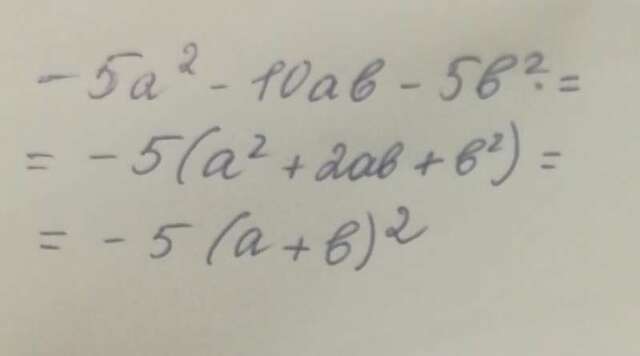 -5a² - 10ab - 5b². =
= -5(a² + 2ab + b²) =
= -5(a + b)²